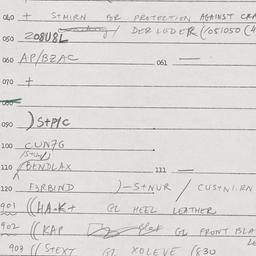 040 + STMIRN FOR PROTECTION AGAINST CRA
050 208U8L / DER LEDER (/051050 (H
060 AP/BZAC 061 —
070 +
080
090 )STP/C
100 CUN7G
110 BENDLAX 111 —
120 F3RBIND )-STNUR / CUSTNI.RN
901 ((HA-K+ GL HEEL LEATHER
902 ((KAP GL FRONT BLA
903 (( STEXT GL XOLEVE (830